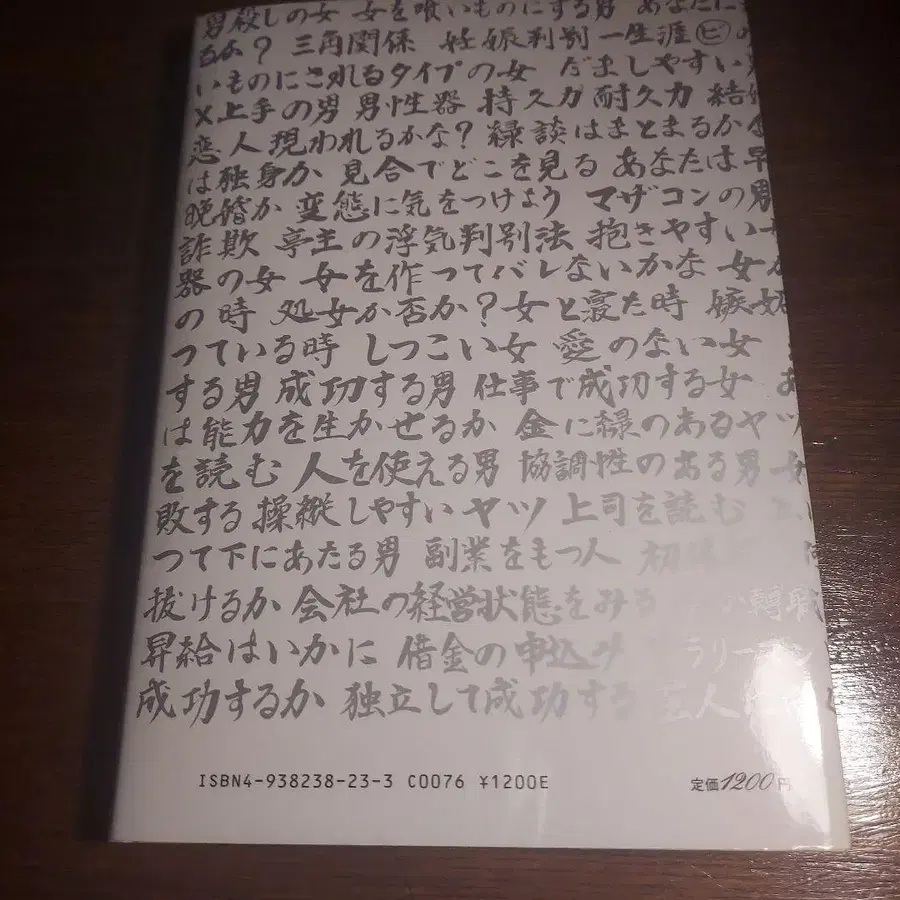 男殺しの女 女を喰いものにする男 あなたに
るよ? 三角関係 妊娠判別 一生涯㋪の
いものにされるタイプの女 だましやすい
X上手の男 男性器 持久力 耐久力 結婚
恋人現われるかな? 縁談はまとまるか
は独身か 見合でどこを見る あなたは早
晩婚か 変態に気をつけよう マザコンの男
詐欺 亭主の浮気判別法 抱きやすい
器の女 女を作ってバレないかな 女が
の時 処女か否か?女と寝た時 嫉妬
っている時 しつこい女 愛のない女
する男 成功する男 仕事で成功する女 あ
は能力を生かせるか 金に縁のあるヤツ
を読む 人を使える男 協調性のある男 女
敗する 操縦しやすいヤツ 上司を読む
つて下にあたる男 副業をもつ人 初
抜けるか 会社の経営状態をみる 転職
昇給はいかに 借金の申込み ラリーマン
成功するか 独立して成功する 芸人
ISBN4-938238-23-3 C0076 ¥1200E
定価1200円